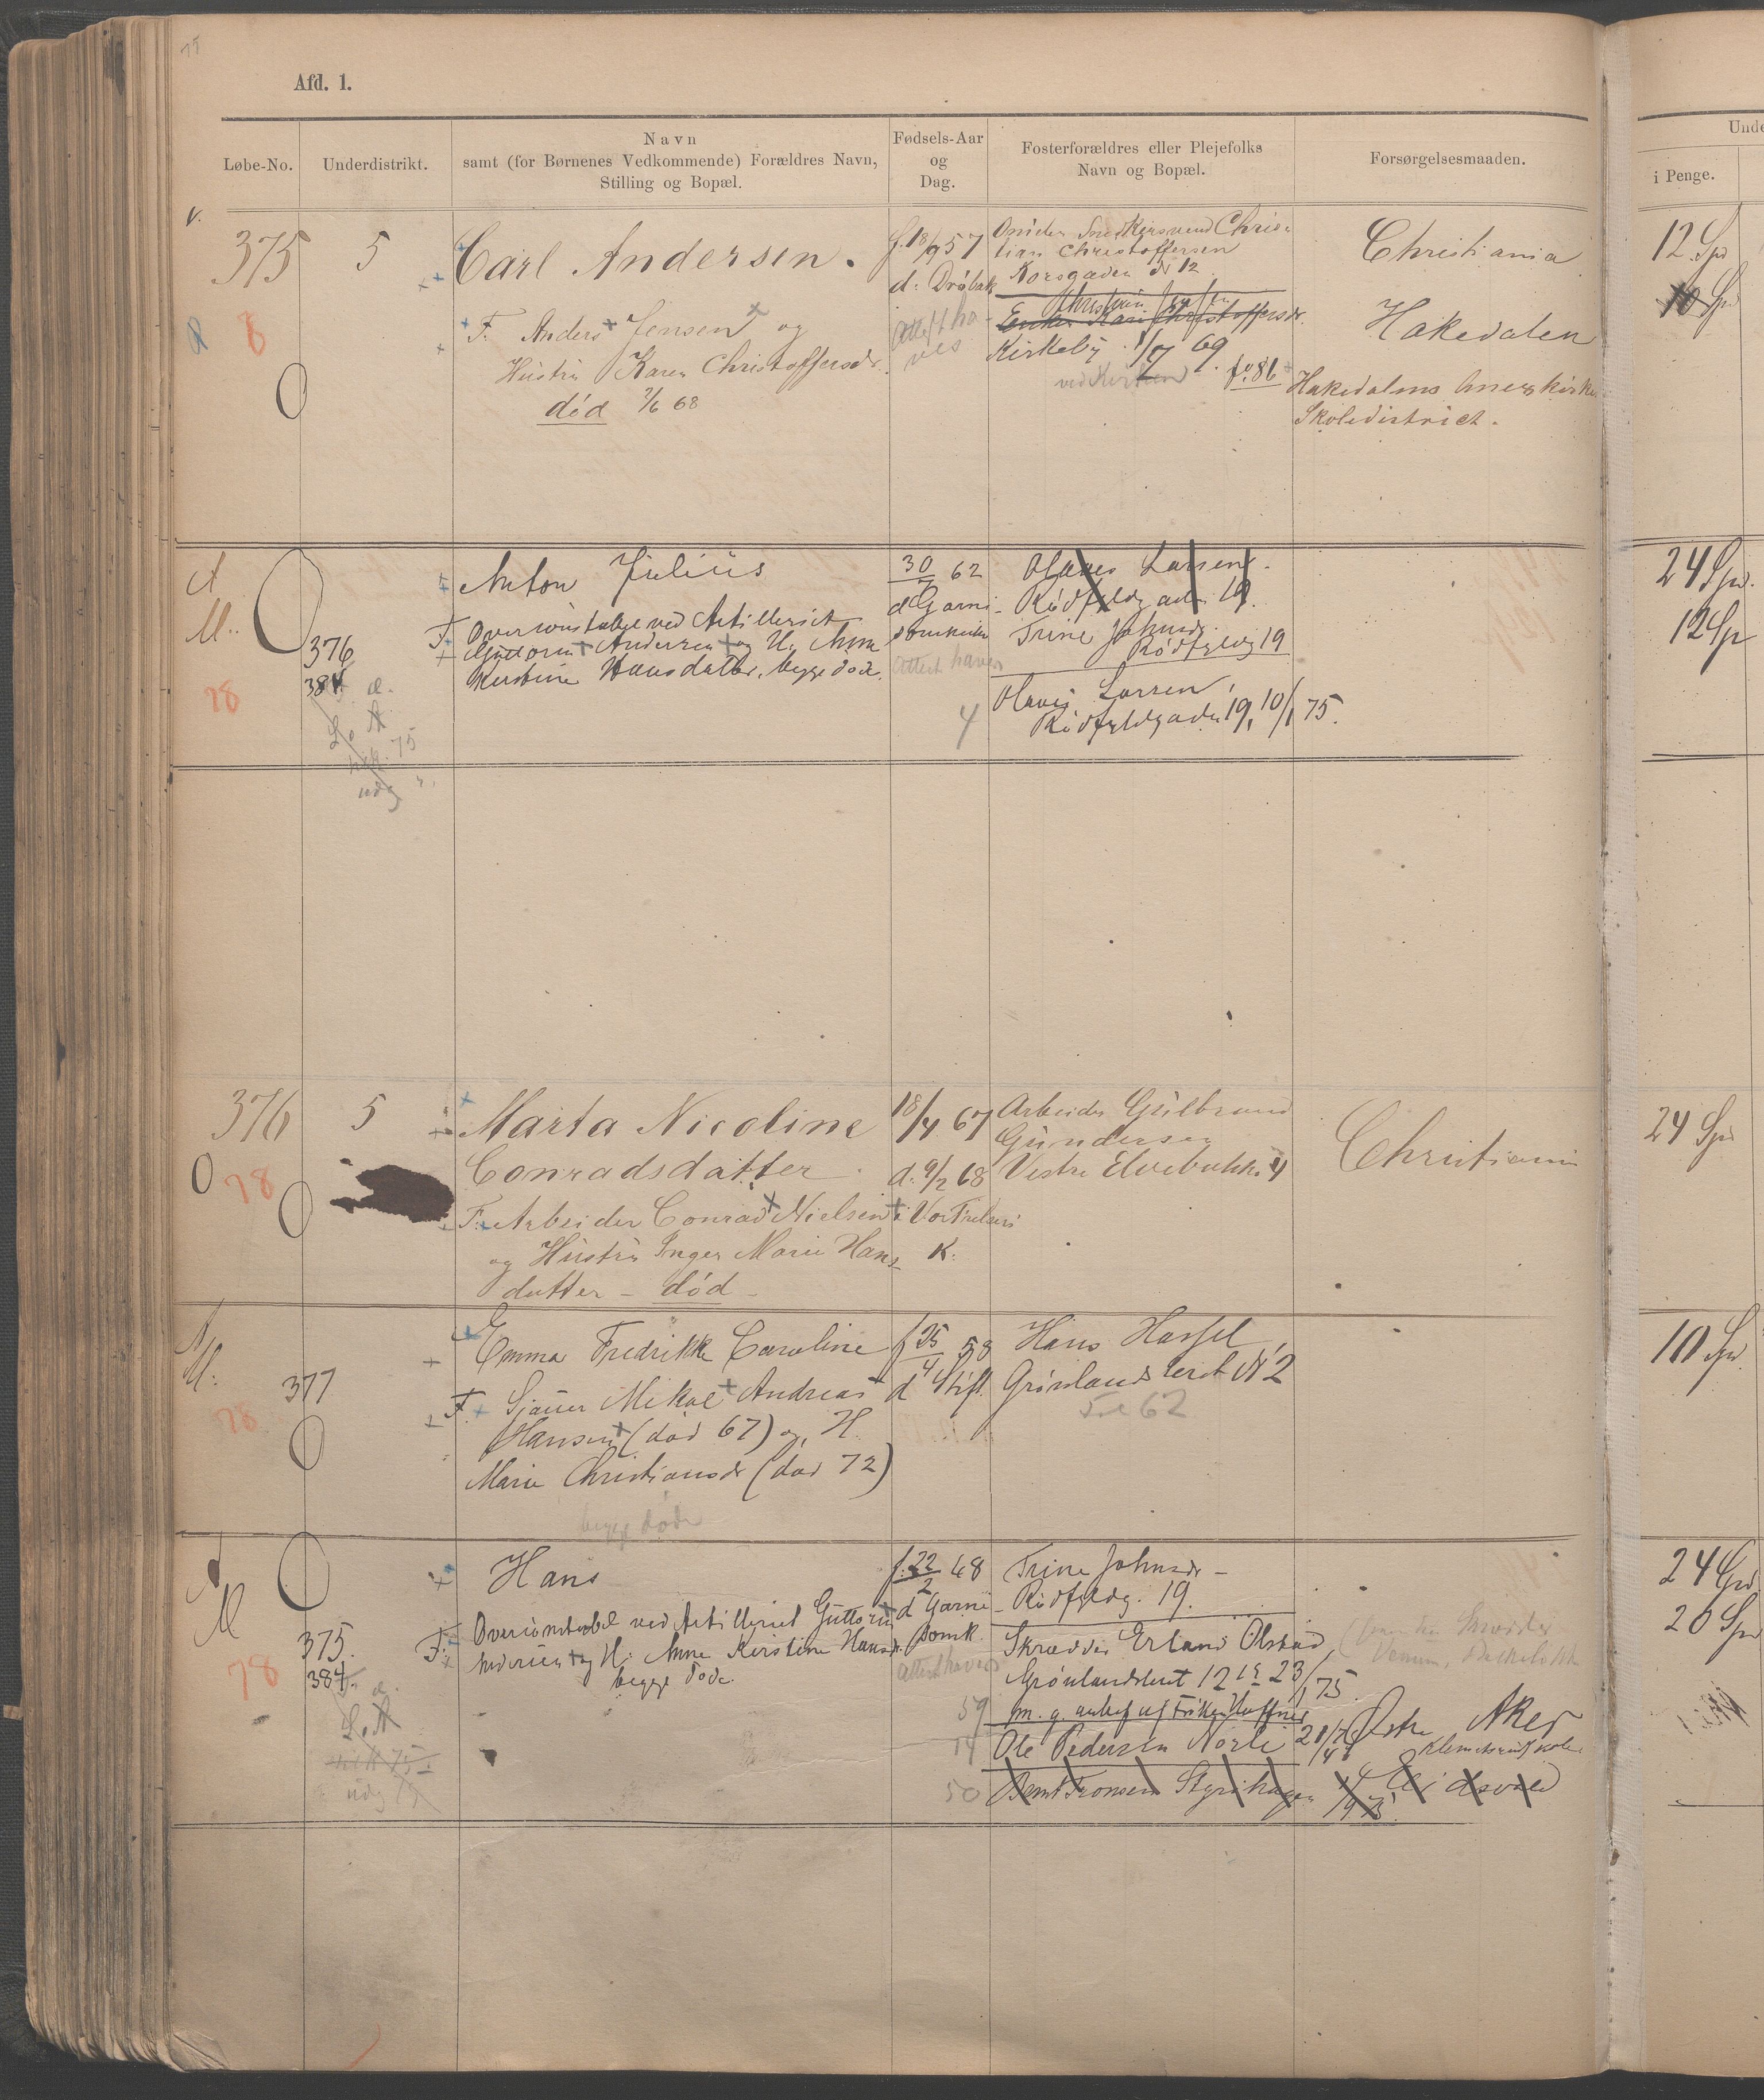 Afd. 1.
Løbe-No.
Underdistrikt.
Navn
samt (for Børnenes Vedkommende) Forældres Navn,
Stilling og Bopæl.
Fødsels-Aar
og
Dag.
Fosterforældres eller Plejefolks
Navn og Bopæl.
Forsørgelsesmaaden.
i Penge.
375
5
Carl Andersen.
F. Anders Jensen og
Hustru Karen Christoffersdr.
død 7/6 68
f. 18/9 57
d. Drøbak
Attest ha-
ves
Snedkersvend Chris-
tian Christoffersen
Korsgaden No 12
Enke Kari Christoffersdr.
Kirkeby 1/7 69. fo. 86
ved Kirken
Christiania
Hakedalen
Hakedalens
Skoledistrict.
12 Spd
10 Spd
M.
376
384
78
Anton Julius
F. Overconstabel ved Artilleriet
Guttorm Andersen og H. Anne
Kerstine Hansdatter, begge døde.
30/7 62
d Garni-
Attest haves
4
Olaves Larsen.
Rødfyldgaden 19.
Trine Johnsdr.
Rødfyldg 19
Olaves Larsen,
Rødfyldgaden 19, 10/1 75.
24 Spd.
12 Sp
376
5
78
Marta Nicoline
Conradsdatter.
F. Arbeider Conrad Nielsen
og Hustru Inger Marie Hans-
datter - død -
18/4 67
d. 9/2 68
i Vor Frelsers
K.
Arbeider Gulbrand
Gundersen
Vestre Elvebakke 4
Christiania
24 Spd
M.
377
78
Emma Fredrikke Caroline
F. Sjauer Mikal Andreas
Hansen (død 67) og H.
Marie Christiansdr (død 72)
begge døde
f 25/4 58
d Stift.
Hans Hassel
Grønlandsleret No 2
Fol 62
10 Spd.
M
375.
384.
78
Hans
F. Overconstabel ved Artilleriet Guttorm
Andersen og H. Anne Kerstine Hansdr.
begge døde.
f. 22/2 48
d Garni-
Domk.
Attest haves
59
14
50
Trine Johnsdr -
Rødfyldg. 19.
Skrædder Erland Olstad
Grønlandsleret 12 23/1 75.
Ole Pedersen Norli 21/4 76 Østre Aker
Klemetsrud Skole
Bernt Tronsen Styrihagen Eidsvold
24 Spd
20 Spd